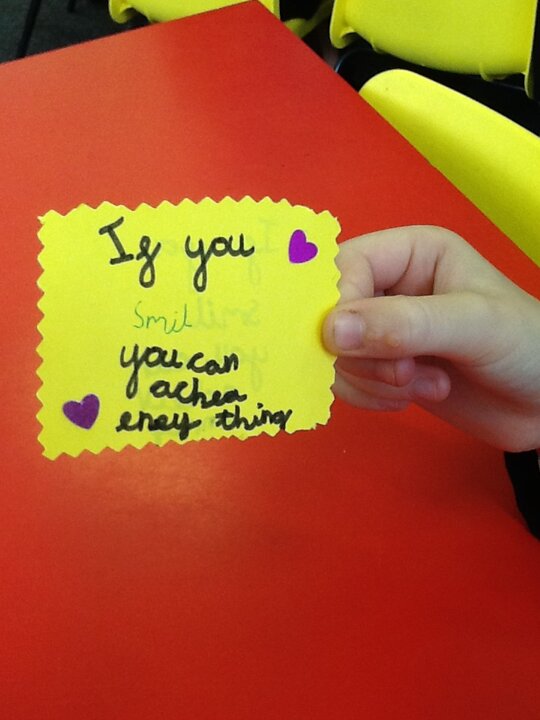 If you
Smil
you can
achea
eney thing